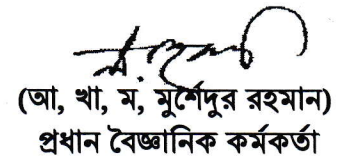 (আ, খা, ম, মুর্শেদুর রহমান)
প্রধান বৈজ্ঞানিক কর্মকর্তা